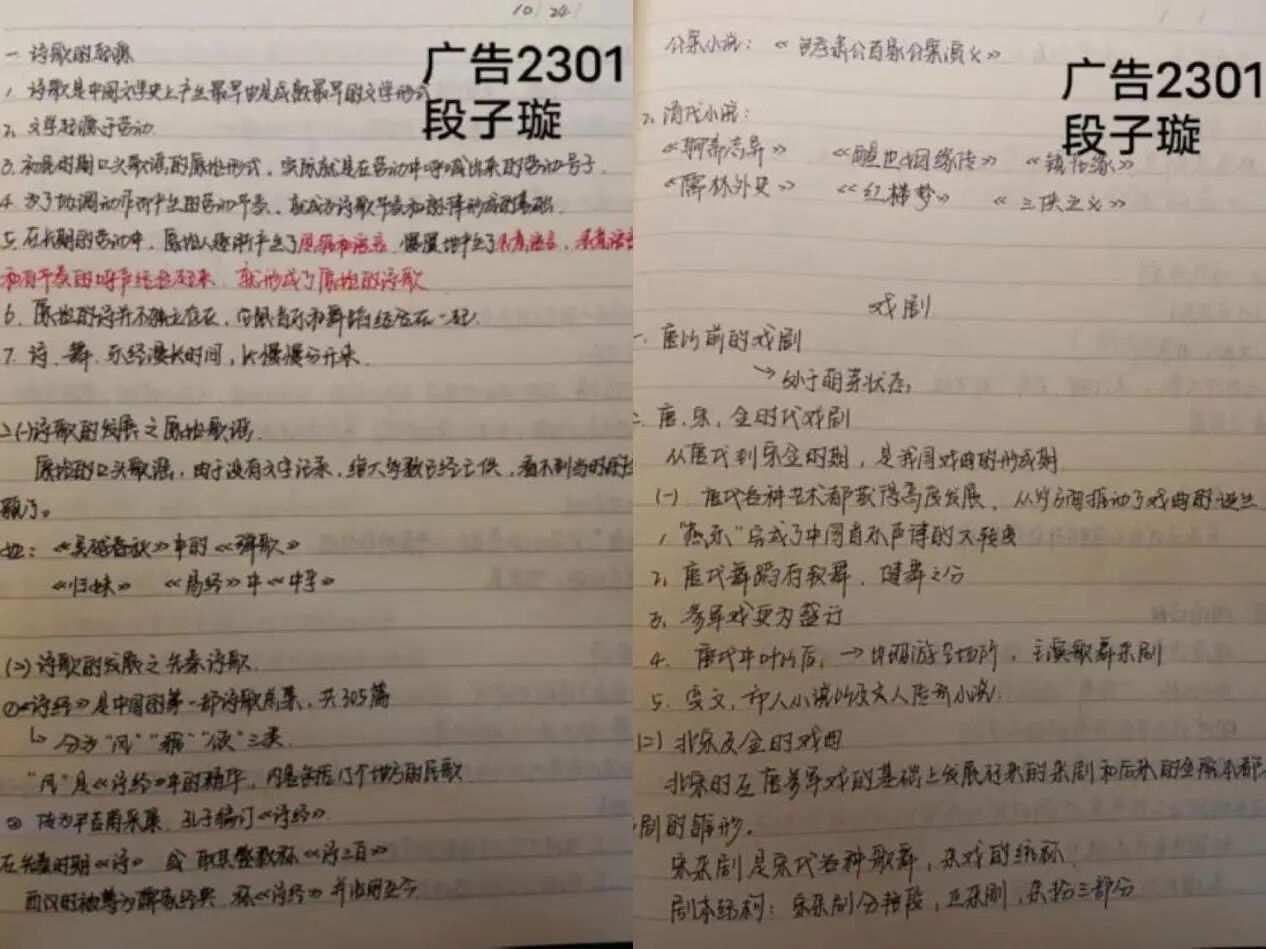 10/24/
广告2301
段子璇
一 诗歌的起源
1、诗歌是中国文学史上产生最早也是成熟最早的文学形式
2、文学起源于劳动.
3、初民时期口头歌谣的原始形式，实际就是在劳动中呼喊出来的劳动号子.
4、为了协调动作所产生的劳动节奏，就成为诗歌节奏和韵律形成的基础.
5、在长期的劳动中，原始人逐渐产生了思维和语言，慢慢地产生了
和有节奏的呼声结合起来，就形成了原始的诗歌
6、原始的诗并不独立存在，它跟音乐和舞蹈结合在一起.
7、诗、舞、乐经漫长时间，才慢慢分开来.
二(一)诗歌的发展之原始歌谣.
原始的口头歌谣，由于没有文字记录，绝大多数已经亡佚，看不到当时的
貌了。
如：《吴越春秋》中的《弹歌》
《归妹》 《易经》中《中孚》
(二)诗歌的发展之先秦诗歌.
①《诗经》是中国的第一部诗歌总集，共305篇
↳分为"风""雅""颂"三类.
"风"是《诗经》中的精华，内容包括15个地方的民歌
② 传为尹吉甫采集、孔子编订《诗经》.
在先秦时期《诗》 或 取其整数称《诗三百》
西汉时被尊为儒家经典，称《诗经》并沿用至今
广告2301
段子璇
公案小说：《包孝肃公百家公案演义》
2、清代小说：
《聊斋志异》 《醒世姻缘传》 《镜花缘》
《儒林外史》 《红楼梦》 《三侠五义》
戏剧
一、唐以前的戏剧
→处于萌芽状态;
二、唐、宋、金时代戏剧
从唐代到宋金时期，是我国戏曲的形成期
(一)、唐代各种艺术都获得高度发展、
1、"燕乐"完成了中国音乐声律的大转变
2、唐代舞蹈有软舞、健舞之分
3、参军戏更为盛行
4、唐代中叶以后，→ 出现游艺场所，主演歌舞杂剧
5、变文，市人小说以及文人传奇小说.
(二)北宋及金时戏曲
北宋时在唐参军戏的基础上发展起来的杂剧和后来的金院本都
剧的雏形。
宋杂剧是宋代各种歌舞，杂戏的统称
剧本结构：宋杂剧分艳段，正杂剧，杂扮三部分